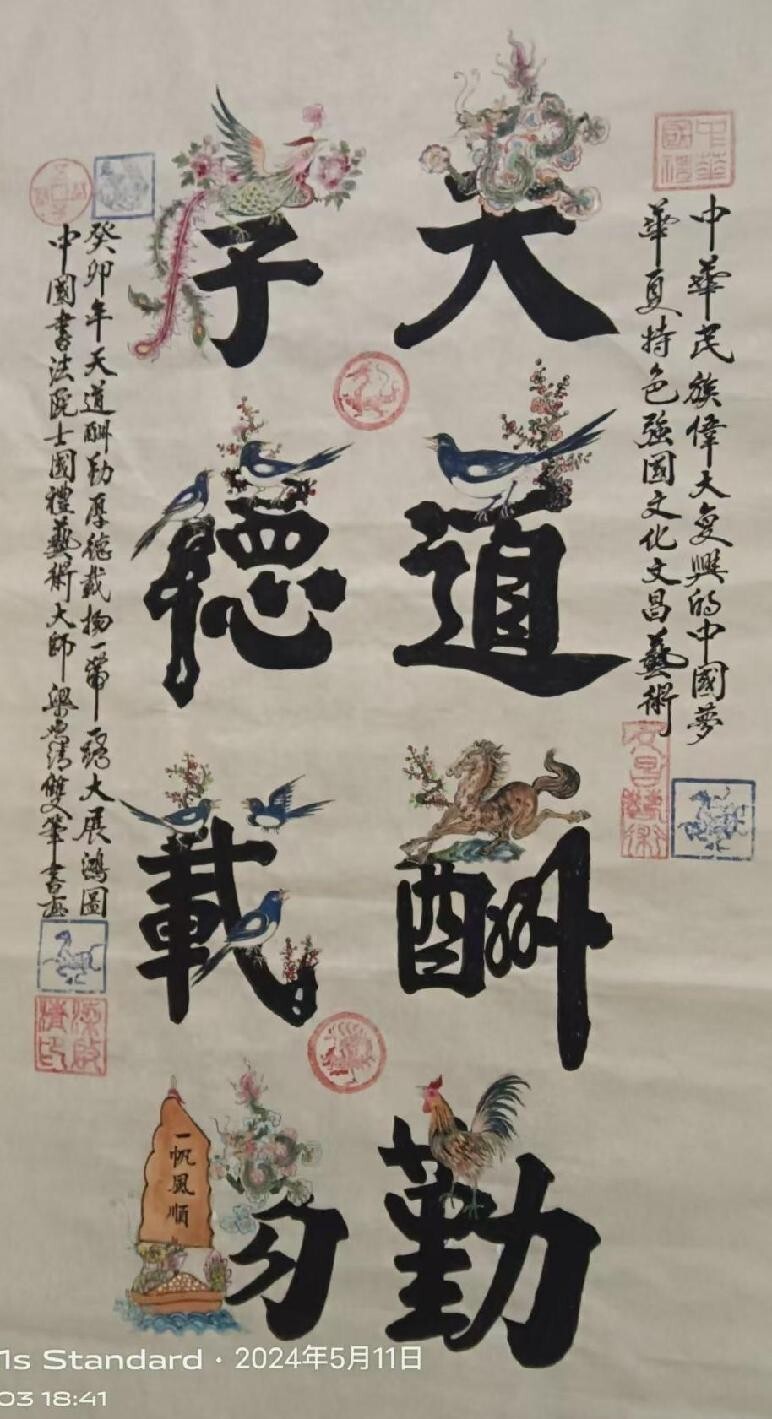 中華國禮
中華民族偉大复興的中國夢
華夏特色強國文化文昌藝術
文昌藝術
天道酬勤
厚德載物
一帆風順
癸卯年天道酬勤厚德載物一帶一路大展鴻圖
中國書法院士國禮藝術大師梁啓清雙筆書画
1s Standard · 2024年5月11日
03 18:41